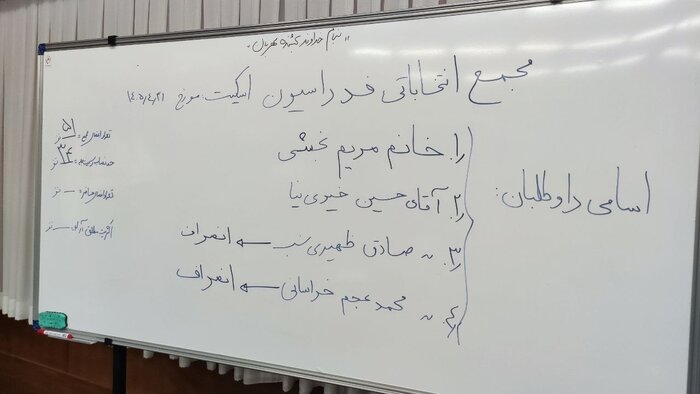 بنام خداوند بخشنده مهربان
مجمع انتخاباتی فدراسیون اسکیت مورخ ۱۴۰۵/۴/۲۱
اسامی داوطلبان:
۱. خانم مریم بخشی
۲. آقای حسین خیری نیا
۳. " صادق ظهیری نسب ← انصراف
۴. " محمد عجم خراسانی ← انصراف
تعداد اعضای مجمع = ۵۱ نفر
= ۳۴ نفر
تعداد اعضای حاضر = — نفر
اکثریت مطلق آراء = — نفر